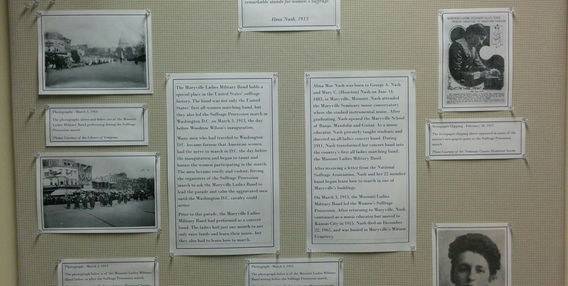 remarkable stands for women's suffrage.
Alma Nash, 1913
Photograph - March 3, 1913
The photograph above and below are of the Missouri
Ladies Military Band performing during the Suffrage
Procession march.
Photo Courtesy of the Library of Congress
The Maryville Ladies Military Band holds a
special place in the United States' suffrage
history. The band was not only the United
States' first all-women marching band, but
they also led the Suffrage Procession march in
Washington D.C. on March 3, 1913, the day
before Woodrow Wilson's inauguration.
Many men who had traveled to Washington
D.C. became furious that American women
had the nerve to march in D.C. the day before
the inauguration and began to taunt and
harass the women participating in the march.
The men became rowdy and violent, forcing
the organizers of the Suffrage Procession
march to ask the Maryville Ladies Band to
lead the parade and calm the aggravated men
until the Washington D.C. cavalry could
arrive.
Prior to the parade, the Maryville Ladies
Military Band had performed as a concert
band. The ladies had just one month to not
only raise funds and learn their music, but
they also had to learn how to march.
Alma Mae Nash was born to George A. Nash
and Mary C. (Houston) Nash on June 14,
1882, in Maryville, Missouri. Nash attended
the Maryville Seminary music conservatory
where she studied instrumental music. After
graduating, Nash opened the Maryville School
of Banjo, Mandolin and Guitar. As a music
educator, Nash privately taught students and
directed an all-ladies concert band. During
1911, Nash transformed her concert band into
the country's first all-ladies marching band,
the Missouri Ladies Military Band.
After receiving a letter from the National
Suffrage Association, Nash and her 22 member
band began learn how to march in one of
Maryville's buildings.
On March 3, 1913, the Missouri Ladies
Military Band led the Women's Suffrage
Procession. After returning to Maryville, Nash
continued as a music educator but moved to
Kansas City in 1925. Nash died on December
22, 1965, and was buried in Maryville's Miriam
Cemetery.
Newspaper Clipping - February 28, 1913
The newspaper clipping above appeared in many of the
nation's newspapers prior to the Suffrage Procession
march.
Photo Courtesy of the Nodaway County Historical Society
Photograph - March 3, 1913
The photograph below is of the Missouri Ladies Military
Band before or after the Suffrage Procession march.
Photograph - March 3, 1913
The photograph below is of the Missouri Ladies Military
Band resting before the Suffrage Procession march.